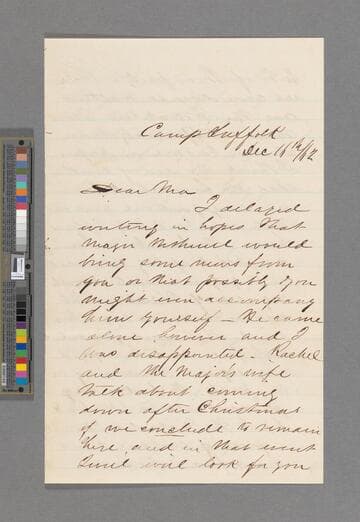 Camp Suffolk
Dec 16th/62
Dear Ma
I delayed
writing in hopes that
Major would
bring some news from
you or that possibly you
might even accompany
him yourself – He came
alone however and I
was disappointed – Rachel
and the Major's wife
talk about coming
down after Christmas
if we conclude to remain
here and in that event
I will look for you